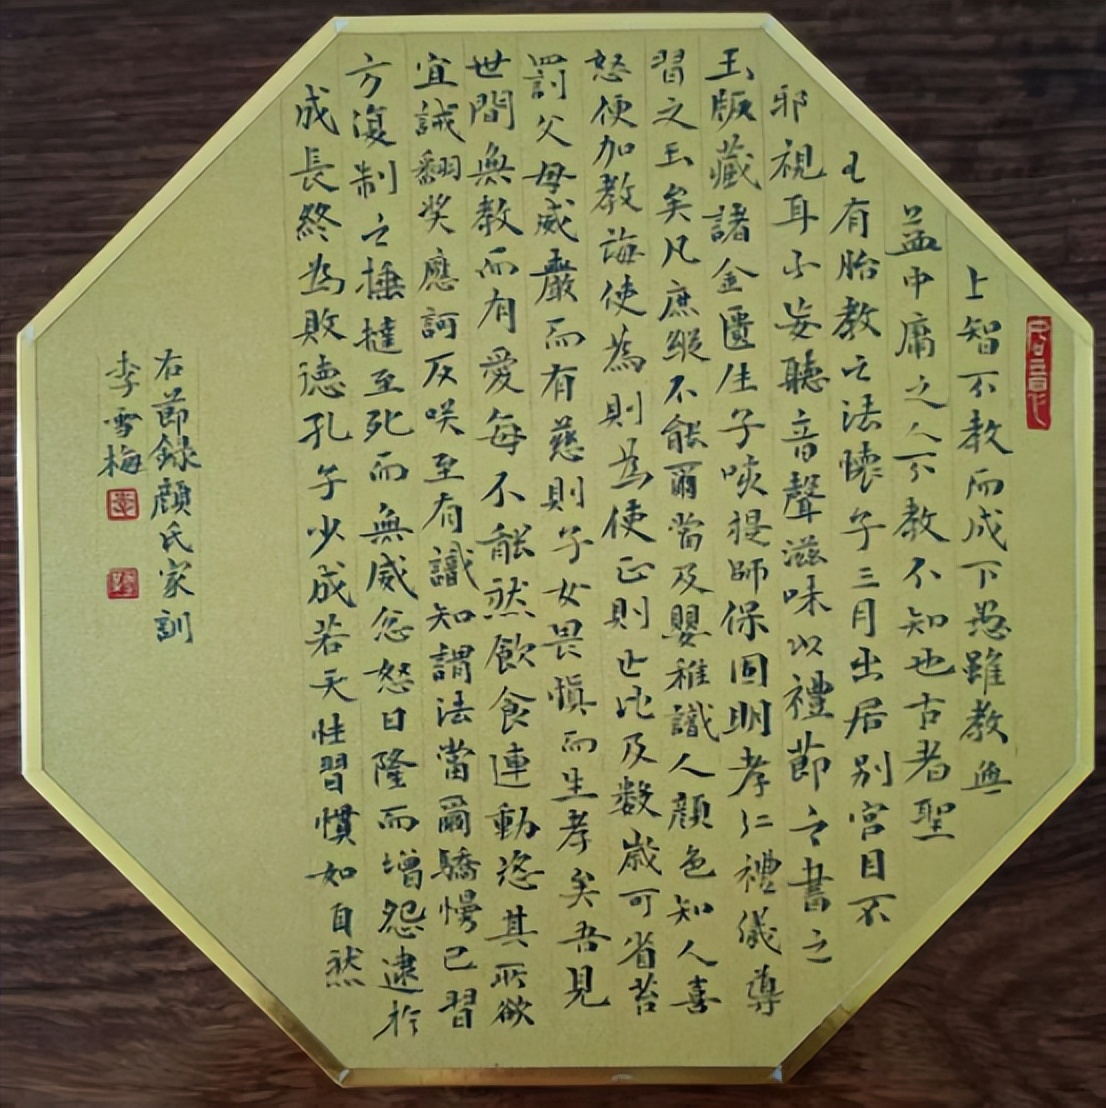 上智不教而成下愚雖教無
益中庸之人不教不知也古者聖
王有胎教之法懷子三月出居別宮目不
邪視耳不妄聽音聲滋味以禮節之書之
玉版藏諸金匱生子咳提師保固明孝仁禮儀導
習之王矣凡庶縱不能爾當及嬰稚識人顏色知人喜
怒便加教誨使為則為使正則止比及数歲可省苔
罰父母威嚴而有慈則子女畏慎而生孝矣吾見
世間無教而有愛每不能然飲食運動恣其所欲
宜誡翻奖應訶反咲至有識知謂法當爾驕慢已習
方復制之捶撻至死而無威忿怒日隆而增怨逮於
成長終為敗德孔子少成若天性習慣如自然
右節録顏氏家訓
李雪梅